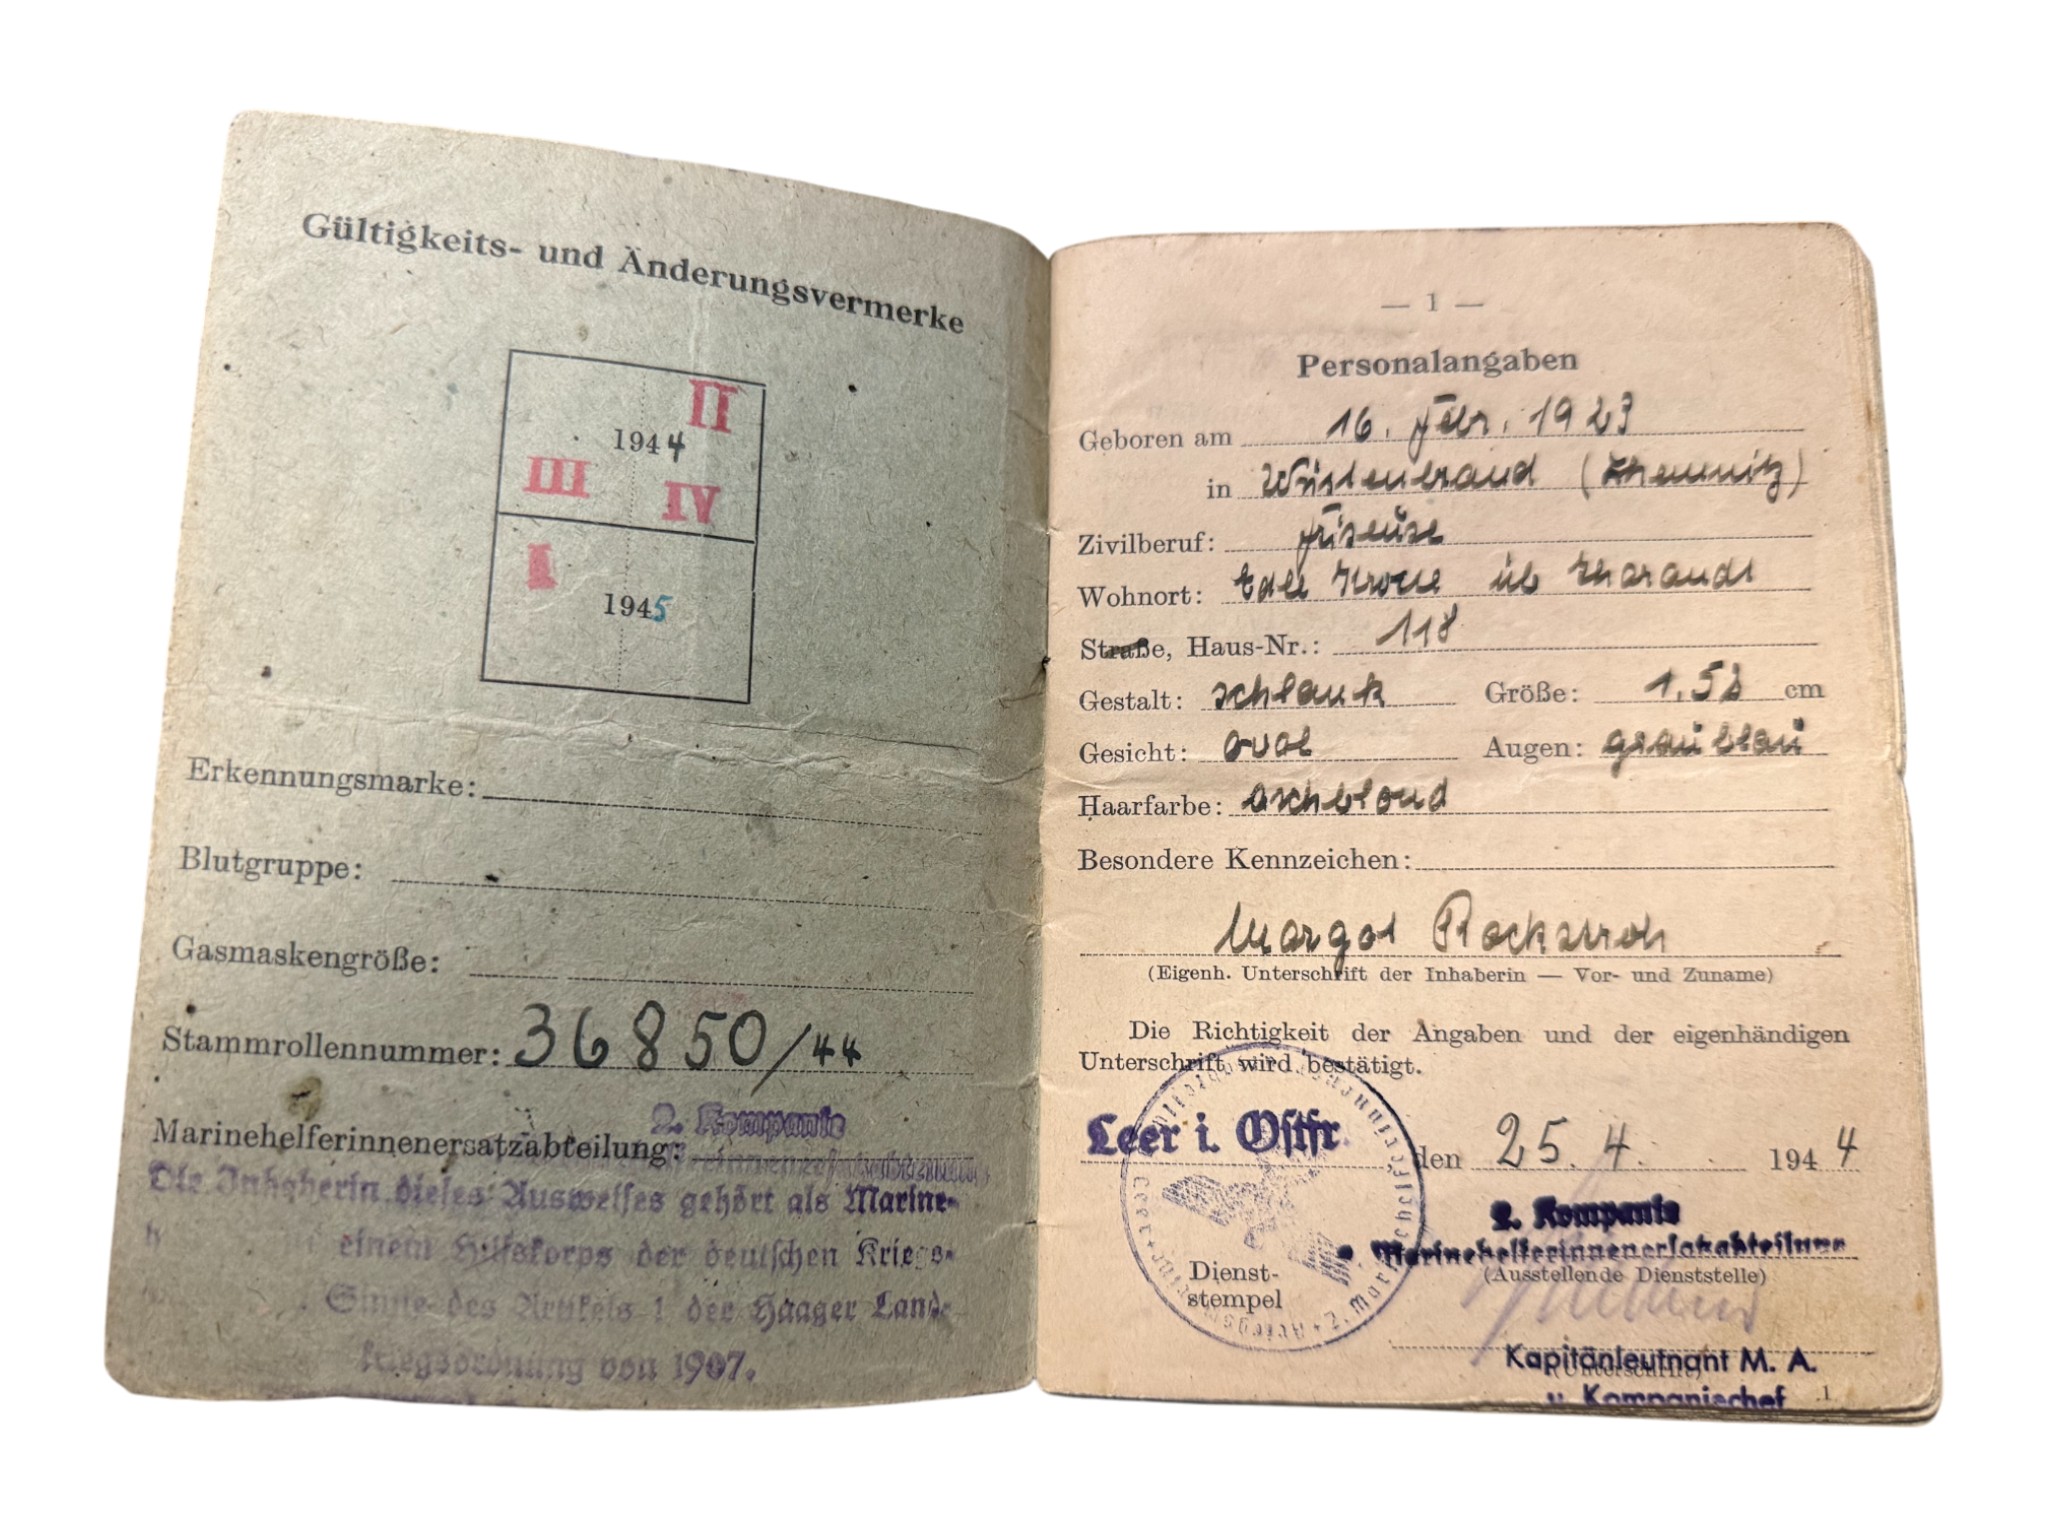 Gültigkeits- und Änderungsvermerke
II
1944
III IV
I
1945
Erkennungsmarke:
Blutgruppe:
Gasmaskengröße:
Stammrollennummer: 36850/44
2. Kompanie
Marinehelferinnenersatzabteilung:
Die Inhaberin dieses Ausweises gehört als Marine-
einem Hilfskorps der deutschen Kriegs-
Sinne des Artikels 1 der Haager Land-
kriegsordnung von 1907.
— 1 —
Personalangaben
Geboren am 16. Febr. 1923
in Wüstenbrand (Chemnitz)
Zivilberuf: Friseuse
Wohnort: Edle Krone üb Tharandt
Straße, Haus-Nr.: 118
Gestalt: schlank Größe: 1,58 cm
Gesicht: oval Augen: graublau
Haarfarbe: aschblond
Besondere Kennzeichen:
Margot Rockstroh
(Eigenh. Unterschrift der Inhaberin — Vor- und Zuname)
Die Richtigkeit der Angaben und der eigenhändigen
Unterschrift wird bestätigt.
Leer i. Ostfr., den 25. 4. 1944
2. Kompanie
Marinehelferinnenersatzabteilung
(Ausstellende Dienststelle)
Dienst-
stempel
Kapitänleutnant M. A.
(Unterschrift)
u. Kompaniechef 1